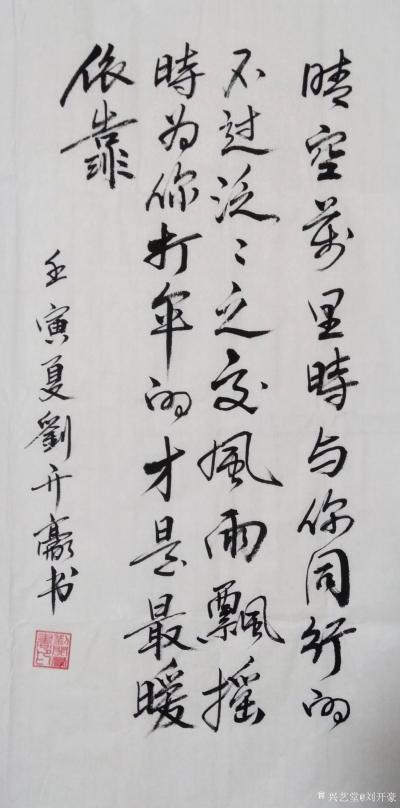 晴空萬里時与你同行的
不过泛泛之交風雨飄摇
時为你打伞的才是最暖
依靠
壬寅夏劉开豪书
兴艺堂@刘开豪